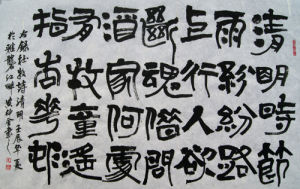 清明時節
雨紛紛路
上行人欲
斷魂借問
酒家何處
有牧童遙
指杏花邨
右錄杜牧詩清明 壬辰年夏
於雅礱江畔